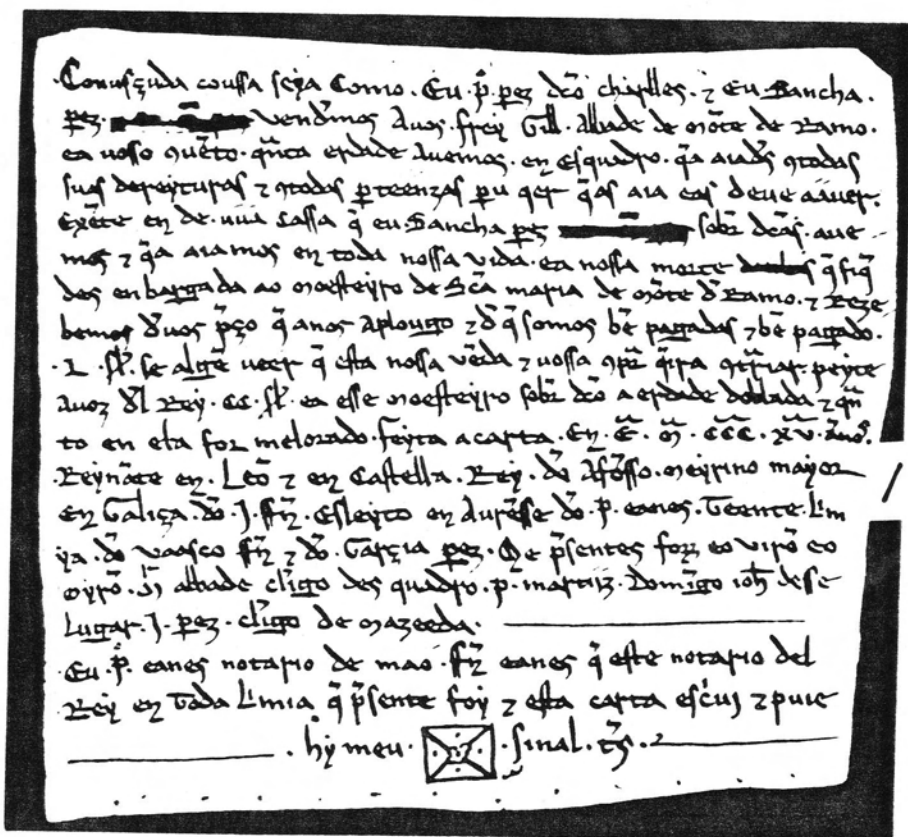 Conusçuda coussa seia Como. Eu. p̃. perz dc̃o chiselles. ⁊ Eu. Sancha.
perz. vend̃mos Auos. frey Gill. Abade de mõte de Ramo.
ea uoso ꝯuẽto. qñta erdade Auemos. en Esquadro. q̃a aiad̃s ꝯtodas
suas dereyturas ⁊ ꝯtodas perteenzas per u qer q̃as aia eas deue aauer.
Exẽte en de. uũa cassa q̃ eu. Sancha perz sobr̃ dc̃as. aue
mos ⁊ q̃a aiamos en toda nossa uida. ea nossa morte q̃ fiq̃
des enbargada ao moesteyro de Sc̃a maria de mõte d̃ Ramo. ⁊ Reze
bemos d̃uos p̃ço q̃ anos Aplougo ⁊ d̃ q̃ somos bẽ pagadas ⁊ bẽ pagado.
.L. sl̃. se algẽ ueer q̃ esta nossa uẽda ⁊ uossa ꝯpr̃a q̃ira ꝯtr̃iar. peyte
Auoz d̃l Rey. CC. sl̃. ea esse moesteyro sobr̃ dc̃o a erdade doblada ⁊ qñ
to en ela for melorado. feyta a carta. En. Ẽ. m̃. C̃C̃C̃. X̃Ṽ. Ãnos.
Reynãte en. Leõ ⁊ en Castella. Rey. dõ Afõsso. meyrino mayor
En Galiça. dõ. J. ff̃z. Esleyto en Aurẽsse dõ. p. eanes. Teente. L'im
ya. dõ uaasco ff̃z ⁊ dõ. Garçia perz. Qe p̃sentes forr̃ eo uirõ eo
oyrõ. abbade cl̃igo des quadro. p. martiz. Domĩgo ioh̃ desse
Lugar. J. perz. cl̃igo de mazeeda.
Eu. p̃. eanes notario de mao. ff̃z eanes q̃ este notario del
Rey en Toda L'imia q̃ p̃sente foy ⁊ esta carta esc̃ui ⁊ puse
. hy meu. . sinal. tr̃s.